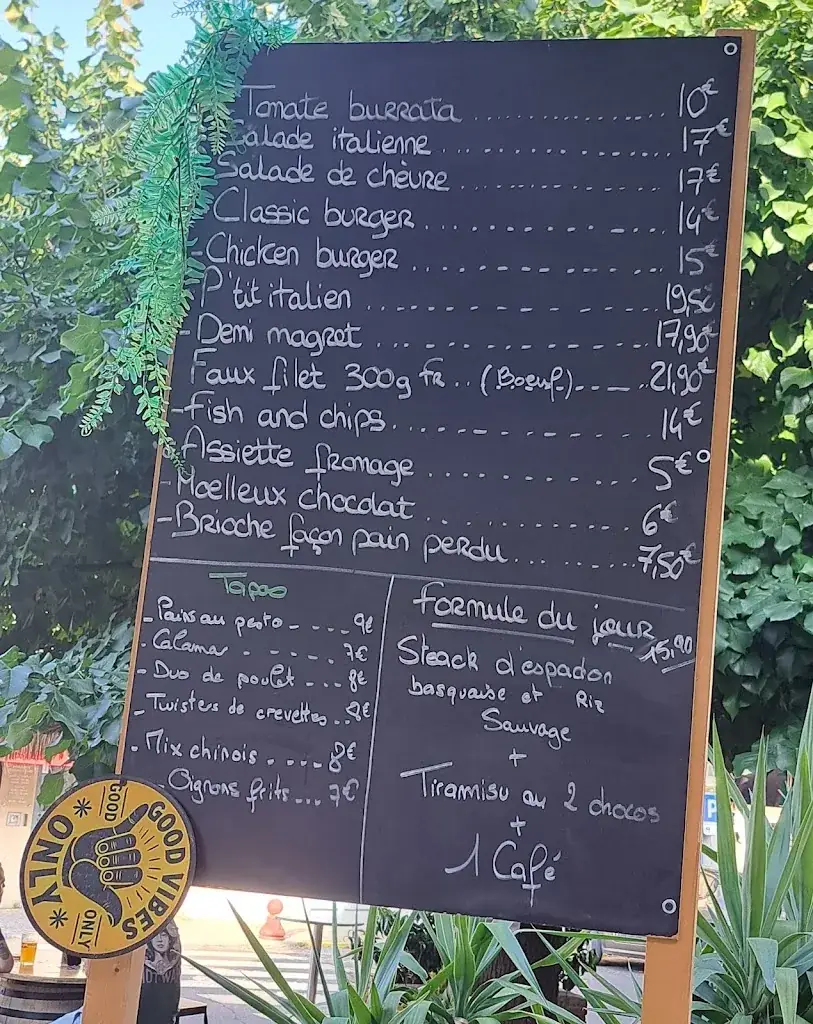 Tomate burrata .................. 10€
Salade italienne .................. 17€
Salade de chèvre .................. 17€
- Classic burger .................. 14€
- Chicken burger .................. 15€
- P'tit italien .................. 19,50€
- Demi magret .................. 17,90€
Faux filet 300g fr.. (Boeuf)....... 21,90€
- Fish and chips .................. 14€
- Assiette fromage .................. 5€
- Moelleux chocolat .................. 6€
- Brioche façon pain perdu .......... 7,50€
Tapas
- Pains au pesto ..... 9€
- Calamar ...... 7€
- Duo de poulet .... 8€
- Twisters de crevettes .. 8€
- Mix chinois ..... 8€
- Oignons frits .... 7€
Formule du jour
15,90
Steack d'espadon
basquaise et Riz
Sauvage
+
Tiramisu ou 2 chocos
+
1 Café
GOOD VIBES
ONLY
GOOD
ONLY
P